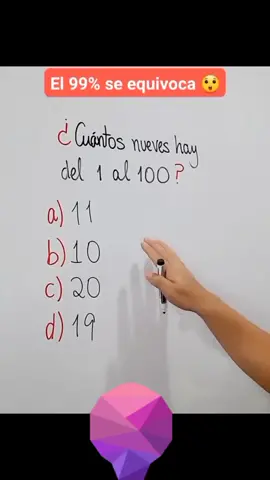 El 99% se equivoca 😲
¿Cuántos nueves hay
del 1 al 100?
a) 11
b) 10
c) 20
d) 19